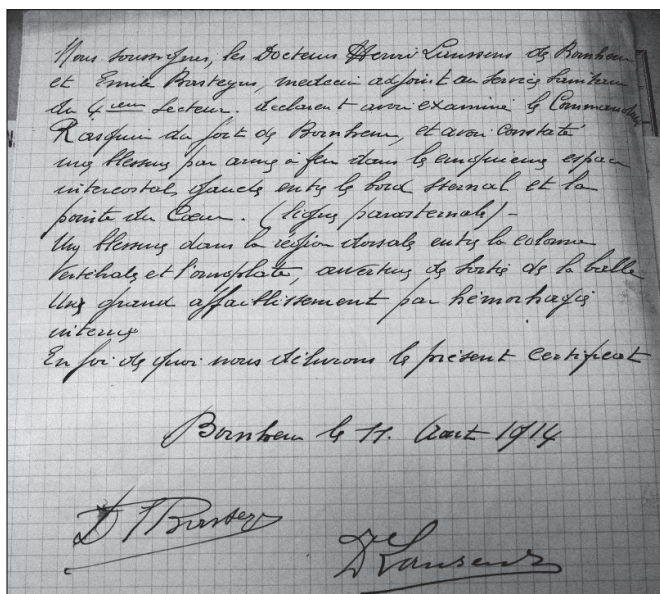 Nous soussignés, les Docteurs Henri Lanssens de Bornhem
et Emile Basteyns, medecin adjoint au service sanitaire
du 4ième Secteur. déclarent avoir examiné le Commandant
Rasquin du fort de Bornhem, et avoir constaté
une blessure par arme à feu dans le cinquième espace
intercostal gauche entre le bord sternal et la
pointe du Cœur. (ligne parasternale) -
Une blessure dans la région dorsale entre la colonne
Vertébrale et l'omoplate, ouverture de sortie de la balle
Une grand affaiblissement par hémorhagie
interne
En foi de quoi nous délivrons le présent certificat
Bornhem le 11. Aout 1914